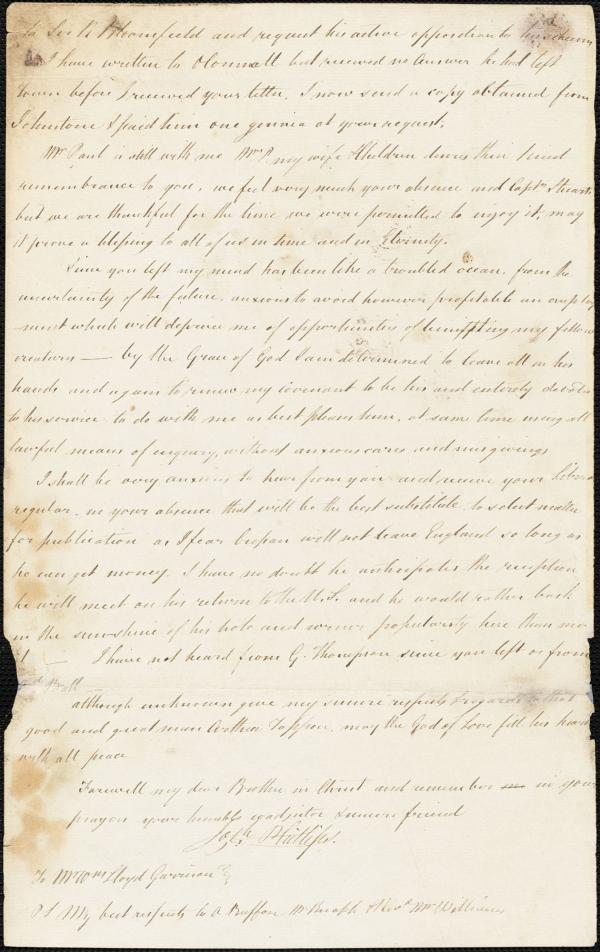 to Sir R Bloomfield and request his active opposition to his scheme
I have written to Oconnall but received no answer he had left
Town before I received your letter. I now send a copy obtained from
Johnstone & paid him one guinia at your request.
Mr Paul is still with me Mrs P my wife & children desires their kind
remembrance to you, we feel very much your absence and Captn Stuarts
but we are thankful for the time we were permitted to enjoy it, may
it prove a blessing to all of us in time and in Eternity.
Since you left my mind has been like a troubled ocean, from the
uncertainty of the future, anxious to avoid however profitable an employ
ment which will deprive me of opportunities of benefitting my fellow
creatures — by the Grace of God I am determined to leave all in his
hands and again to renew my covenant to be his and entirely devoted
to his service to do with me as best pleases him, at same time using all
lawful means of enquiry, without anxious cares and misgivings
I shall be very anxious to hear from you and receive your Liberator
regular, in your absence that will be the best substitute to select matter
for publication as I fear Cresson will not leave England so long as
he can get money. I have no doubt he anticipates the reception
he will meet on his return to the U.S. and he would rather bask
in the sunshine of his hole and corner popularity here than
I have not heard from G. Thompson since you left or from
Ball
although unknown give my sincere respects & regards to that
good and great man Arthur Tappan, may the God of Love fill his heart
with all peace
Farewell my dear Brother in Christ and remember me in your
prayers your humble coadjutor & sincere friend
Josh Phillips.
To Mr Wm Lloyd Garrison
P S My best respects to A Buffum & Revd Mr Williams